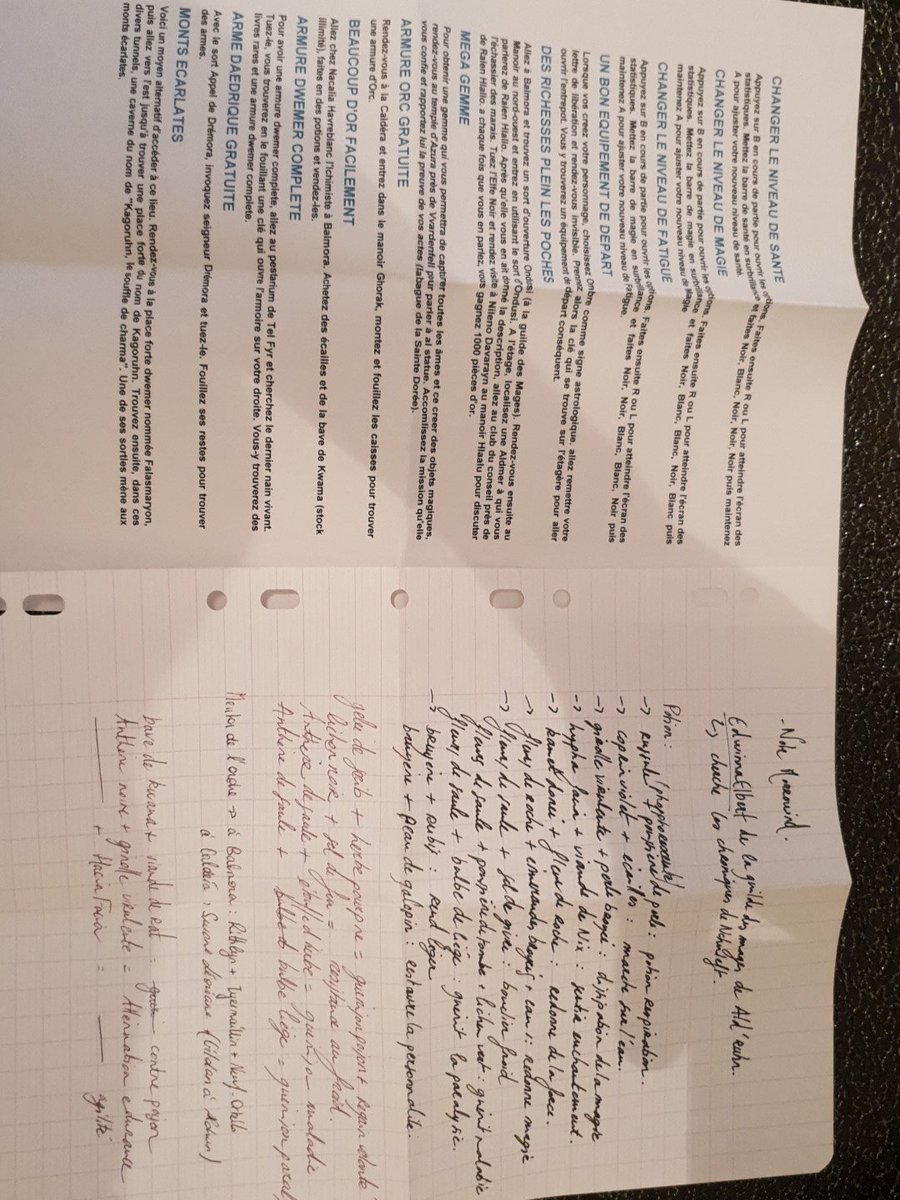 CHANGER LE NIVEAU DE SANTE
Appuyez sur B en cours de partie pour ouvrir les options. Faites ensuite R ou L pour atteindre l'écran des
statistiques. Mettez la barre de santé en surbrillance et faites Noir, Blanc, Noir, Noir, Noir puis maintenez
A pour ajuster votre nouveau niveau de santé.
CHANGER LE NIVEAU DE MAGIE
Appuyez sur B en cours de partie pour ouvrir les options. Faites ensuite R ou L pour atteindre l'écran des
statistiques. Mettez la barre de magie en surbrillance et faites Noir, Blanc, Blanc, Noir, Blanc puis
maintenez A pour ajuster votre nouveau niveau de Magie
CHANGER LE NIVEAU DE FATIGUE
Appuyez sur B en cours de partie pour ouvrir les options. Faites ensuite R ou L pour atteindre l'écran des
statistiques. Mettez la barre de magie en surbrillance et faites Noir, Noir, Blanc, Blanc, Noir puis
maintenez A pour ajuster votre nouveau niveau de Fatigue.
UN BON EQUIPEMENT DE DEPART
Lorsque vos creez votre personnage, choisissez Ombre comme signe astrologique. allez remettre votre
lettre de libération et rendez-vous invisible. Prennez alors la clé qui se trouve sur l'étagère pour aller
ouvrir l'entrepot. Vous y trouverez un équipement de départ conséquent.
DES RICHESSES PLEIN LES POCHES
Allez à Balmora et trouvez un sort d'ouverture Ondusi (à la guilde des Mages). Rendez-vous ensuite au
Manoir au nord-ouest et entrez en utilisant le sort d'Ondusi. A l'étage, localisez une Aldmer à qui vous
parlerez de Ralen Hlallo. Après qu'elle vous en ait donné la description, allez au club du conseil près de
l'échassier des marais. Tuez l'Effe Noir et rendez visite à Nileno Davarayn au manoir Hlaalu pour discuter
de Ralen Hlallo. a chaque fois que vous en parlez, vous gagnez 1000 pièces d'or.
MEGA GEMME
Pour obtenir une gemme qui vous permettra de captrer toutes les âmes et ce creer des objets magiques,
rendez-vous au temple d'Azura près de Vvardenfell pour parler al statue. Accomlissez la mission qu'elle
vous confie et apportez lui la preuve de vos actes (labague de la Sainte Dorée).
ARMURE ORC GRATUITE
Rendez-vous à la Caldéra et entrez dans le manoir Ghorak, montez et fouillez les caisses pour trouver
une armure d'Orc.
BEAUCOUP D'OR FACILEMENT
Allez chez Nacalia Havreblanc l'lchimiste à Balmora. Achetez des écailles et de la bave de Kwama (stock
illimité), faites en des potions et vendez-les.
ARMURE DWEMER COMPLETE
Pour avoir une armure dwemer complete, allez au pestarium de Tel Fyr et cherchez le dernier nain vivant.
Tuez-le, vous trouverez en le fouillant une clé qui ouvre l'armoire sur votre droite. Vous-y trouverez des
livres rares et une armure dwemer complète.
ARME DAEDRIQUE GRATUITE
Avec le sort Appel de Drémora, invoquez seigneur Drémora et tuez-le. Fouillez ses restes pour trouver
des armes.
MONTS ECARLATES
Voici un moyen alternatif d'accéder à ce lieu. Rendez-vous à la place forte dwemer nommée Falasmaryon,
puis allez vers l'est jusqu'à trouver une place forte du nom de Kagoruhn. Trouvez ensuite, dans ces
divers tunnels, une caverne du nom de "Kagoruhn, le souffle de charma". Une de ses sorties mène aux
monts écarlates.
- Note Morrowind.
Edwinna Elbert de la guilde des mages de Ald'ruhn.
↳ cherche les chroniques de Nchuleft.
Potion :
→ potion respiration.
→ coprin violet + écailles : marche sur l'eau.
→ girolle virulente + poils bargué : dissipation de la magie
→ hypha facia + viande de Nix : sentir enchantement.
→ kanet dorée + fleur de roche : redonne de la force.
→ fleur de roche + : redonne magie
→ fleur de saule + sel de givre : bouclier froid
fleur de saule + poussière de tombe + lichen vert : guérit maladie
fleur de saule + bulbe de liège : guérit la paralysie.
→ bruyère + rubis : rend léger
bruyère + peau de galopin : restaure la personnalité.
gelée de scrib + herbe pourpre = guérison poison +
lichen noir + sel de feu = résistance au froid
guérison maladie
Anthère de saule + bulbe liège = guérison paral
Mentor de l'ordre → à Balmora : Rithleyn + Tyermaillin + Neuf-Orteils
à Caldéra : (Gildan à Ald'ruhn)
bave de kwama + viande de rat = contre poison
Anthère noire + girolle virulente = Atténuation endurance
+ Hacia Facia = agilité